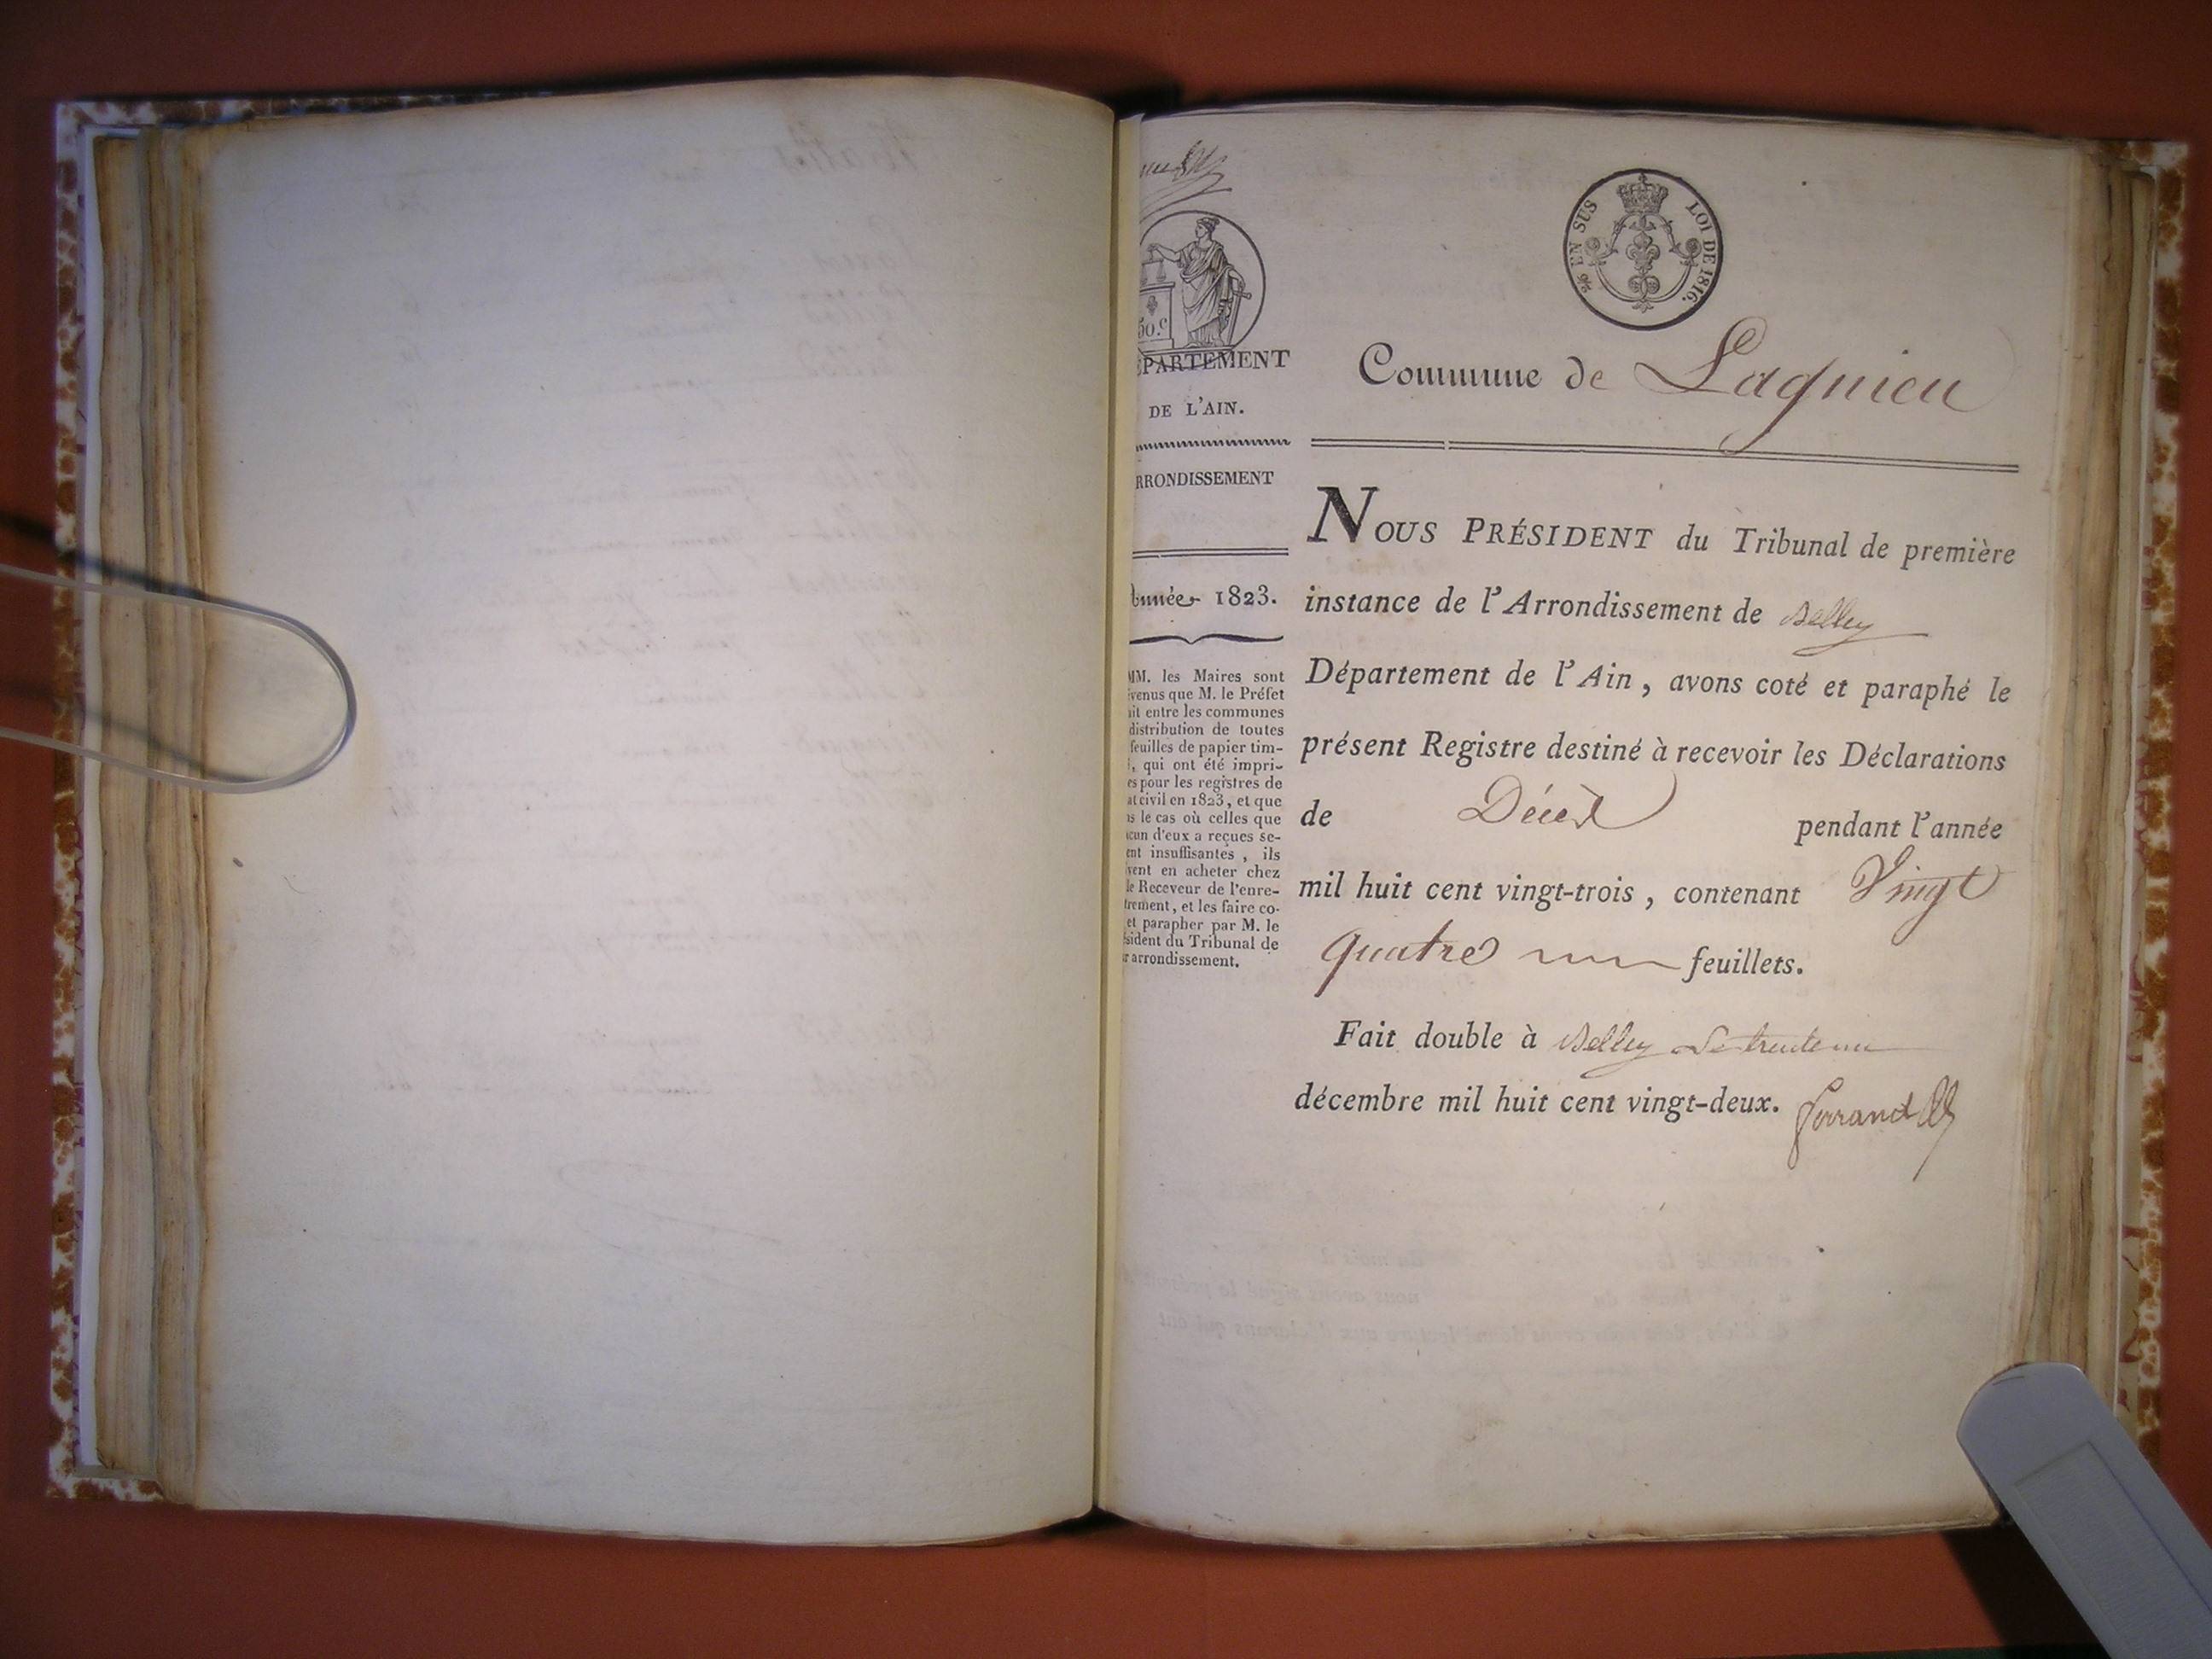 EN SUS
LOI DE 1816.
50.c
ÉPARTEMENT
DE L'AIN.
RRONDISSEMENT
Année 1823.
MM. les Maires sont
venus que M. le Préfet
ait entre les communes
distribution de toutes
feuilles de papier tim-
, qui ont été impri-
es pour les registres de
at civil en 1823, et que
ns le cas où celles que
acun d'eux a reçues se-
ent insuffisantes, ils
vent en acheter chez
le Receveur de l'enre-
trement, et les faire co-
et parapher par M. le
ésident du Tribunal de
r arrondissement.
Commune de Lagnieu
NOUS PRÉSIDENT du Tribunal de première
instance de l'Arrondissement de Belley
Département de l'Ain, avons coté et paraphé le
présent Registre destiné à recevoir les Déclarations
de Décès pendant l'année
mil huit cent vingt-trois, contenant Vingt
quatre feuillets.
Fait double à Belley Le trente un
décembre mil huit cent vingt-deux.